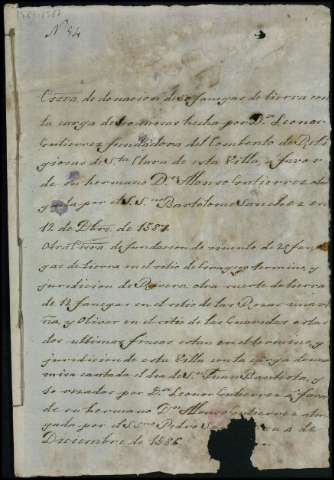 Nº 54
Escra. de donacion de 20 fanegas de tierra con
la carga de misas hecha por Dª. Leonor
Gutierrez fundadora del Combento de Reli
giosas de Sta. Clara de esta Villa, a favor
de su hermano Dn. Alonso Gutierrez otor
gada por el S. Bartolome Sanchez en
12 de Dbre. de 1581
Otra Escra. de fundacion de vinculo de 29 fan
gas de tierra en el sitio de termino y
juridicion de otra suerte de tierra
de 12 fanegas en el sitio de las Rozas una
ña, y Olivar en el sitio de las estas
dos ultimas fincas estan en el termino y
juridicion de esta Villa con la carga de una
misa cantada el dia de Sn. Juan Bautista, y
se rezadas por Dª. Leonor Gutierrez a favor
de su hermano Dn. Alonso Gutierrez otor
gada por el S. Pedro a 2 de
Diciembre de 1586